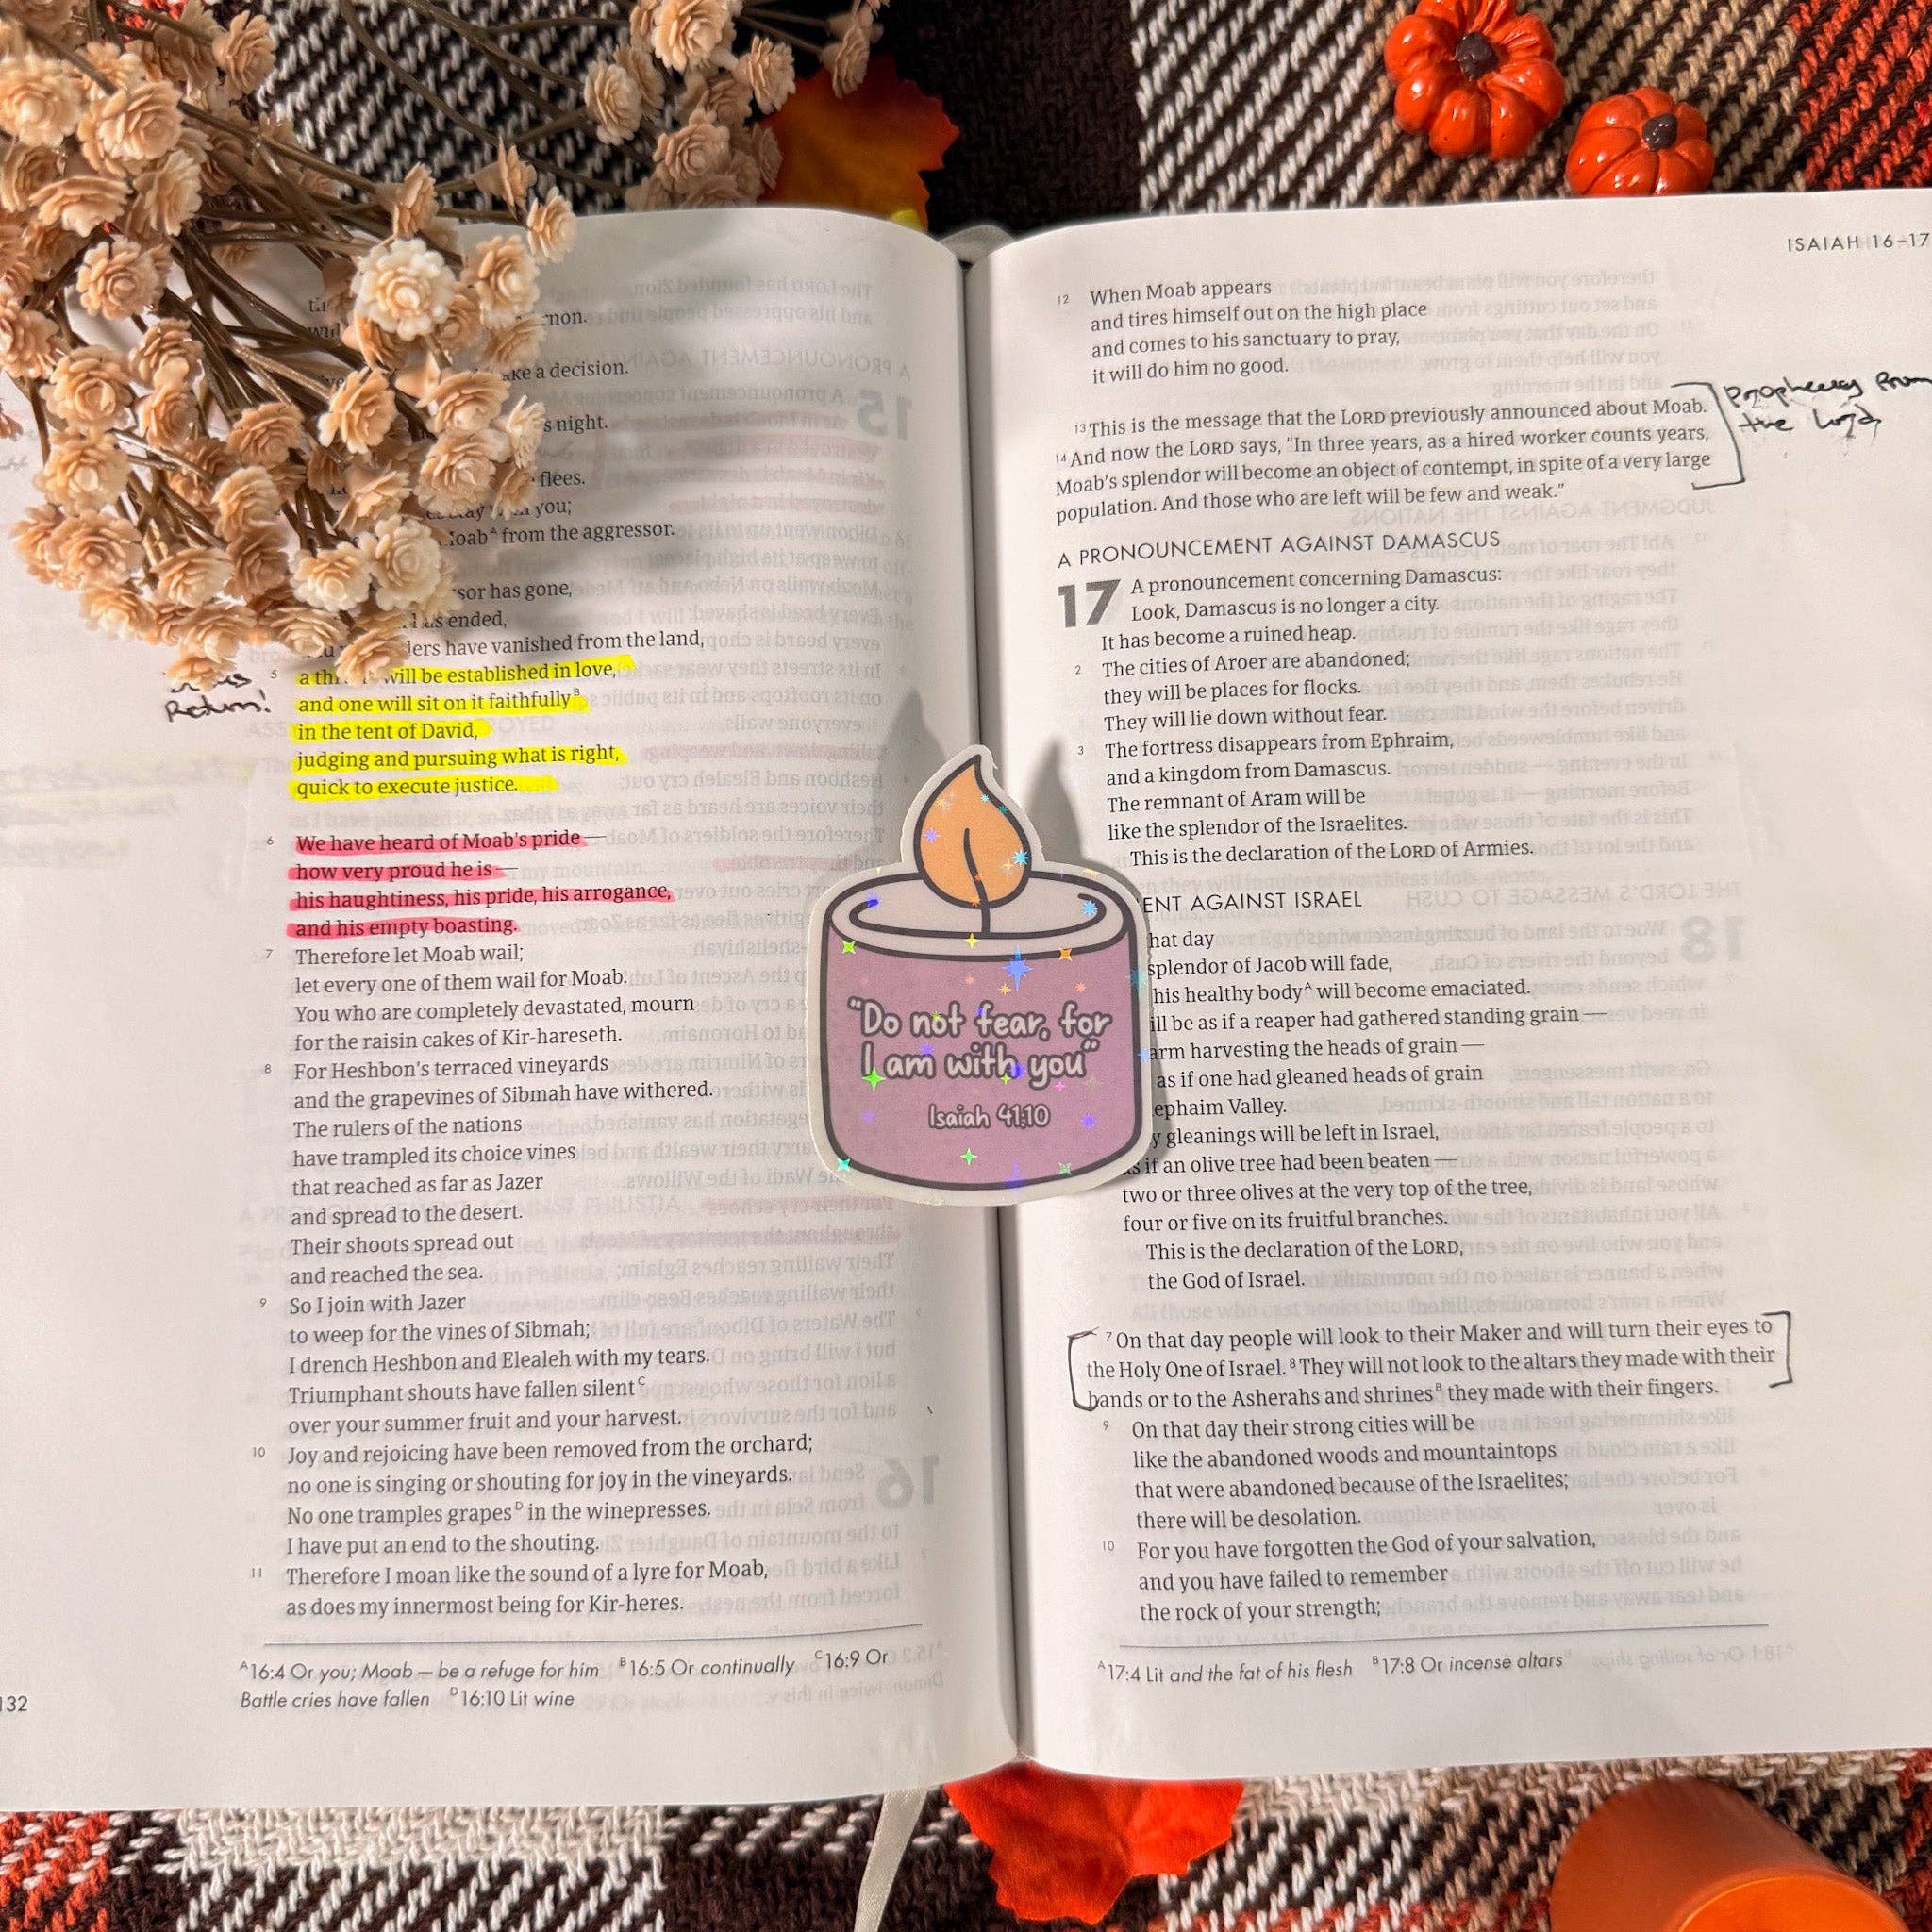 non.
ke a decision.
s night.
flees.
you;
Moab^A from the aggressor.
sor has gone,
ended,
have vanished from the land,
5 a will be established in love,
Return!
and one will sit on it faithfully^B
in the tent of David,
judging and pursuing what is right,
quick to execute justice.
6 We have heard of Moab's pride —
how very proud he is —
his haughtiness, his pride, his arrogance,
and his empty boasting.
7 Therefore let Moab wail;
let every one of them wail for Moab.
You who are completely devastated, mourn
for the raisin cakes of Kir-hareseth.
8 For Heshbon's terraced vineyards
and the grapevines of Sibmah have withered.
The rulers of the nations
have trampled its choice vines
that reached as far as Jazer
and spread to the desert.
Their shoots spread out
and reached the sea.
9 So I join with Jazer
to weep for the vines of Sibmah;
I drench Heshbon and Elealeh with my tears.
Triumphant shouts have fallen silent^C
over your summer fruit and your harvest.
10 Joy and rejoicing have been removed from the orchard;
no one is singing or shouting for joy in the vineyards.
No one tramples grapes^D in the winepresses.
I have put an end to the shouting.
11 Therefore I moan like the sound of a lyre for Moab,
as does my innermost being for Kir-heres.
^A16:4 Or you; Moab — be a refuge for him ^B16:5 Or continually ^C16:9 Or
Battle cries have fallen ^D16:10 Lit wine
132
"Do not fear, for
I am with you"
Isaiah 41:10
ISAIAH 16–17
12 When Moab appears
and tires himself out on the high place
and comes to his sanctuary to pray,
it will do him no good.
13 This is the message that the LORD previously announced about Moab.
14 And now the LORD says, "In three years, as a hired worker counts years,
Moab's splendor will become an object of contempt, in spite of a very large
population. And those who are left will be few and weak."
from
the Lord
A PRONOUNCEMENT AGAINST DAMASCUS
17 A pronouncement concerning Damascus:
Look, Damascus is no longer a city.
It has become a ruined heap.
2 The cities of Aroer are abandoned;
they will be places for flocks.
They will lie down without fear.
3 The fortress disappears from Ephraim,
and a kingdom from Damascus.
The remnant of Aram will be
like the splendor of the Israelites.
This is the declaration of the LORD of Armies.
ENT AGAINST ISRAEL
hat day
splendor of Jacob will fade,
his healthy body^A will become emaciated.
ill be as if a reaper had gathered standing grain —
arm harvesting the heads of grain —
as if one had gleaned heads of grain
ephaim Valley.
y gleanings will be left in Israel,
as if an olive tree had been beaten —
two or three olives at the very top of the tree,
four or five on its fruitful branches.
This is the declaration of the LORD,
the God of Israel.
7 On that day people will look to their Maker and will turn their eyes to
the Holy One of Israel. 8 They will not look to the altars they made with their
hands or to the Asherahs and shrines^B they made with their fingers.
9 On that day their strong cities will be
like the abandoned woods and mountaintops
that were abandoned because of the Israelites;
there will be desolation.
10 For you have forgotten the God of your salvation,
and you have failed to remember
the rock of your strength;
^A17:4 Lit and the fat of his flesh ^B17:8 Or incense altars